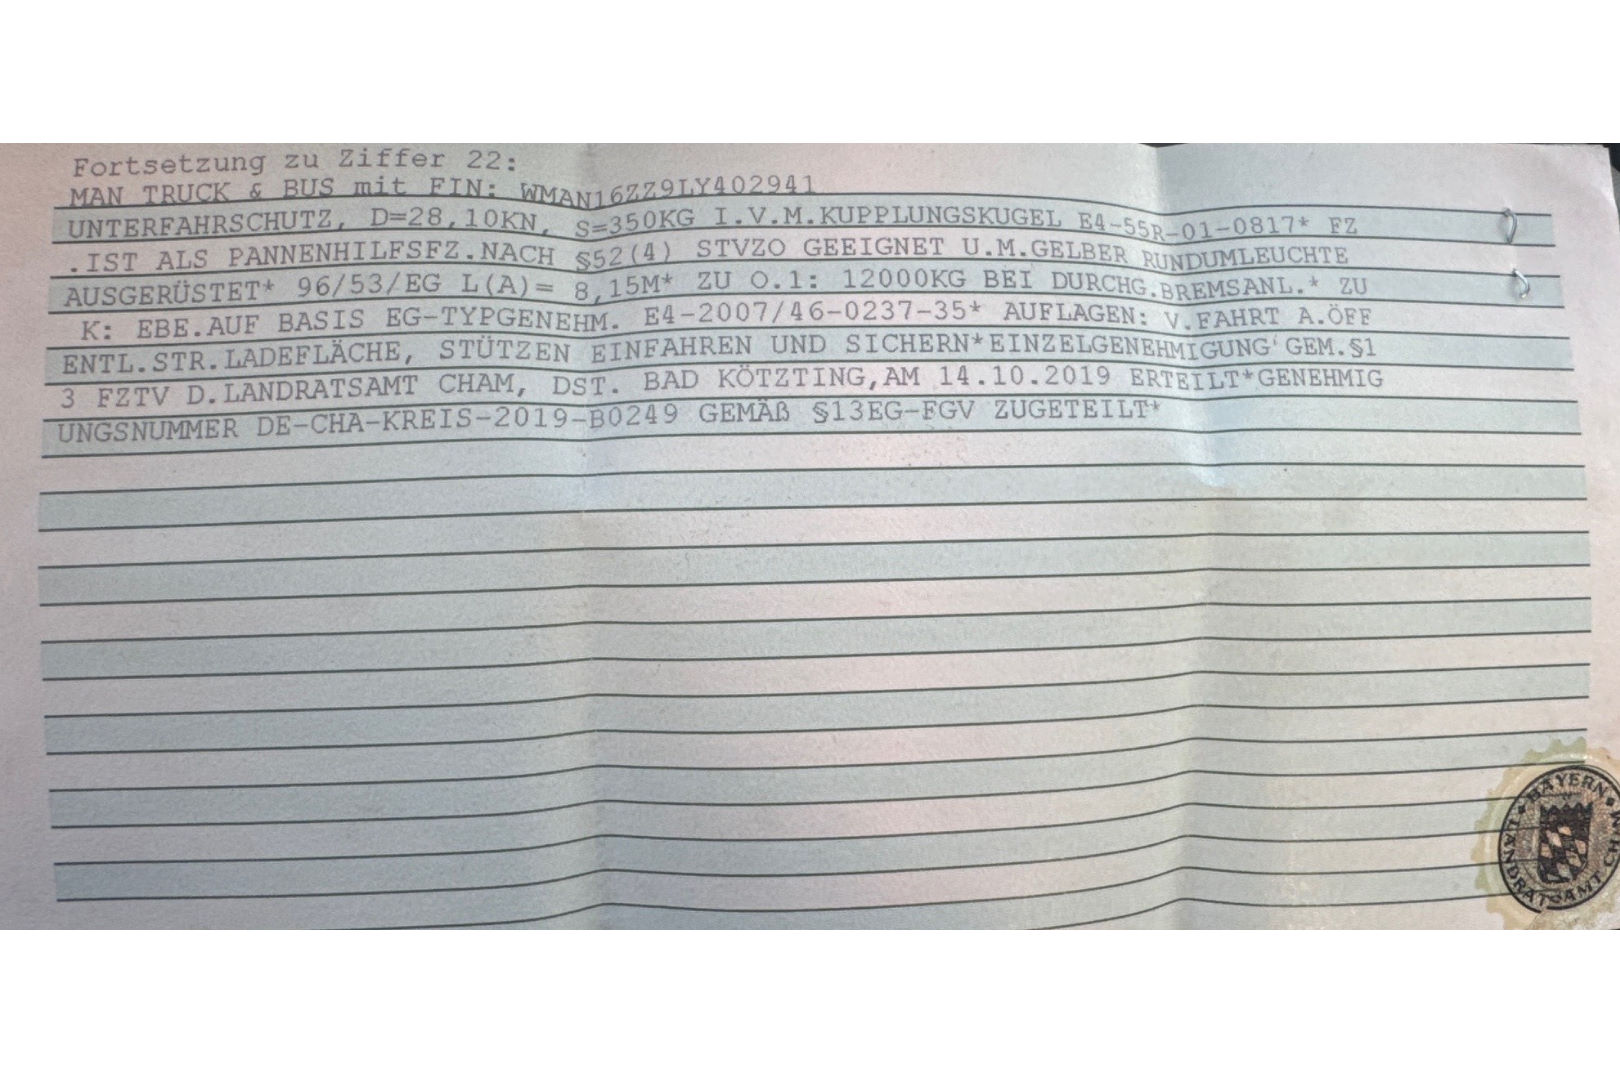 Fortsetzung zu Ziffer 22:
MAN TRUCK & BUS mit FIN: WMAN16ZZ9LY402941
UNTERFAHRSCHUTZ, D=28,10KN, S=350KG I.V.M.KUPPLUNGSKUGEL E4-55R-01-0817* FZ
.IST ALS PANNENHILFSFZ.NACH §52(4) STVZO GEEIGNET U.M.GELBER RUNDUMLEUCHTE
AUSGERÜSTET* 96/53/EG L(A)= 8,15M* ZU O.1: 12000KG BEI DURCHG.BREMSANL.* ZU
K: EBE.AUF BASIS EG-TYPGENEHM. E4-2007/46-0237-35* AUFLAGEN: V.FAHRT A.ÖFF
ENTL.STR.LADEFLÄCHE, STÜTZEN EINFAHREN UND SICHERN*EINZELGENEHMIGUNG GEM.§1
3 FZTV D.LANDRATSAMT CHAM, DST. BAD KÖTZTING,AM 14.10.2019 ERTEILT*GENEHMIG
UNGSNUMMER DE-CHA-KREIS-2019-B0249 GEMÄß §13EG-FGV ZUGETEILT*
BAYERN
LANDRATSAMT CHAM